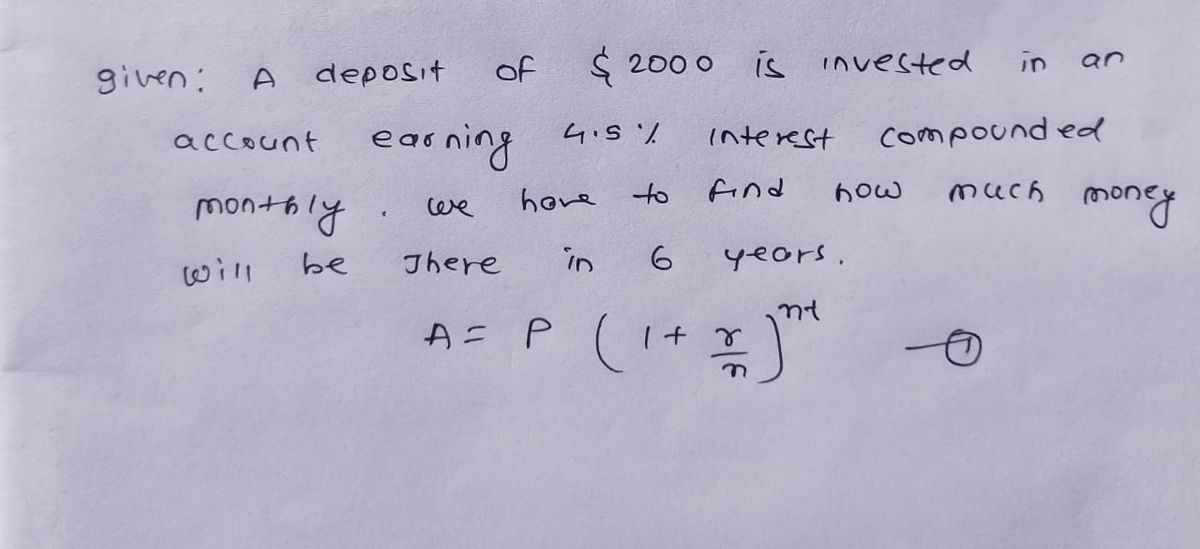 given: A deposit of $ 2000 is invested in an
account earning 4.5 % interest compounded
monthly. we have to find how much money
will be There in 6 years.
A = P ( 1 + r/n )^nt —①